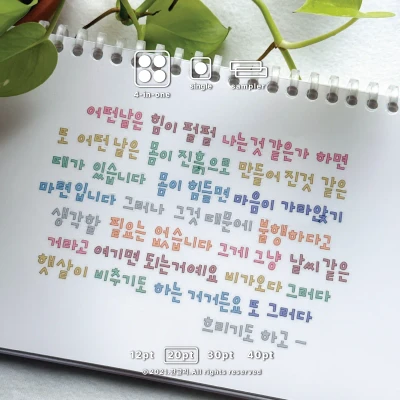 4-in-one single sampler
어떤날은 힘이 펌펌 나는것 같은가 하면
또 어떤날은 몸이 진흙으로 만들어진것 같은
때가 있습니다 몸이 힘들면 마음이 가라앉기
마련입니다 그러나 그것 때문에 불행하다고
생각할 필요는 없습니다 그게 그냥 날씨 같은
거라고 여기면 되는거예요 비가오다 그러다
햇살이 비추기도 하는 거거든요 또 그러다
흐리기도 하고 —
12pt 20pt 30pt 40pt
© 2021. All rights reserved